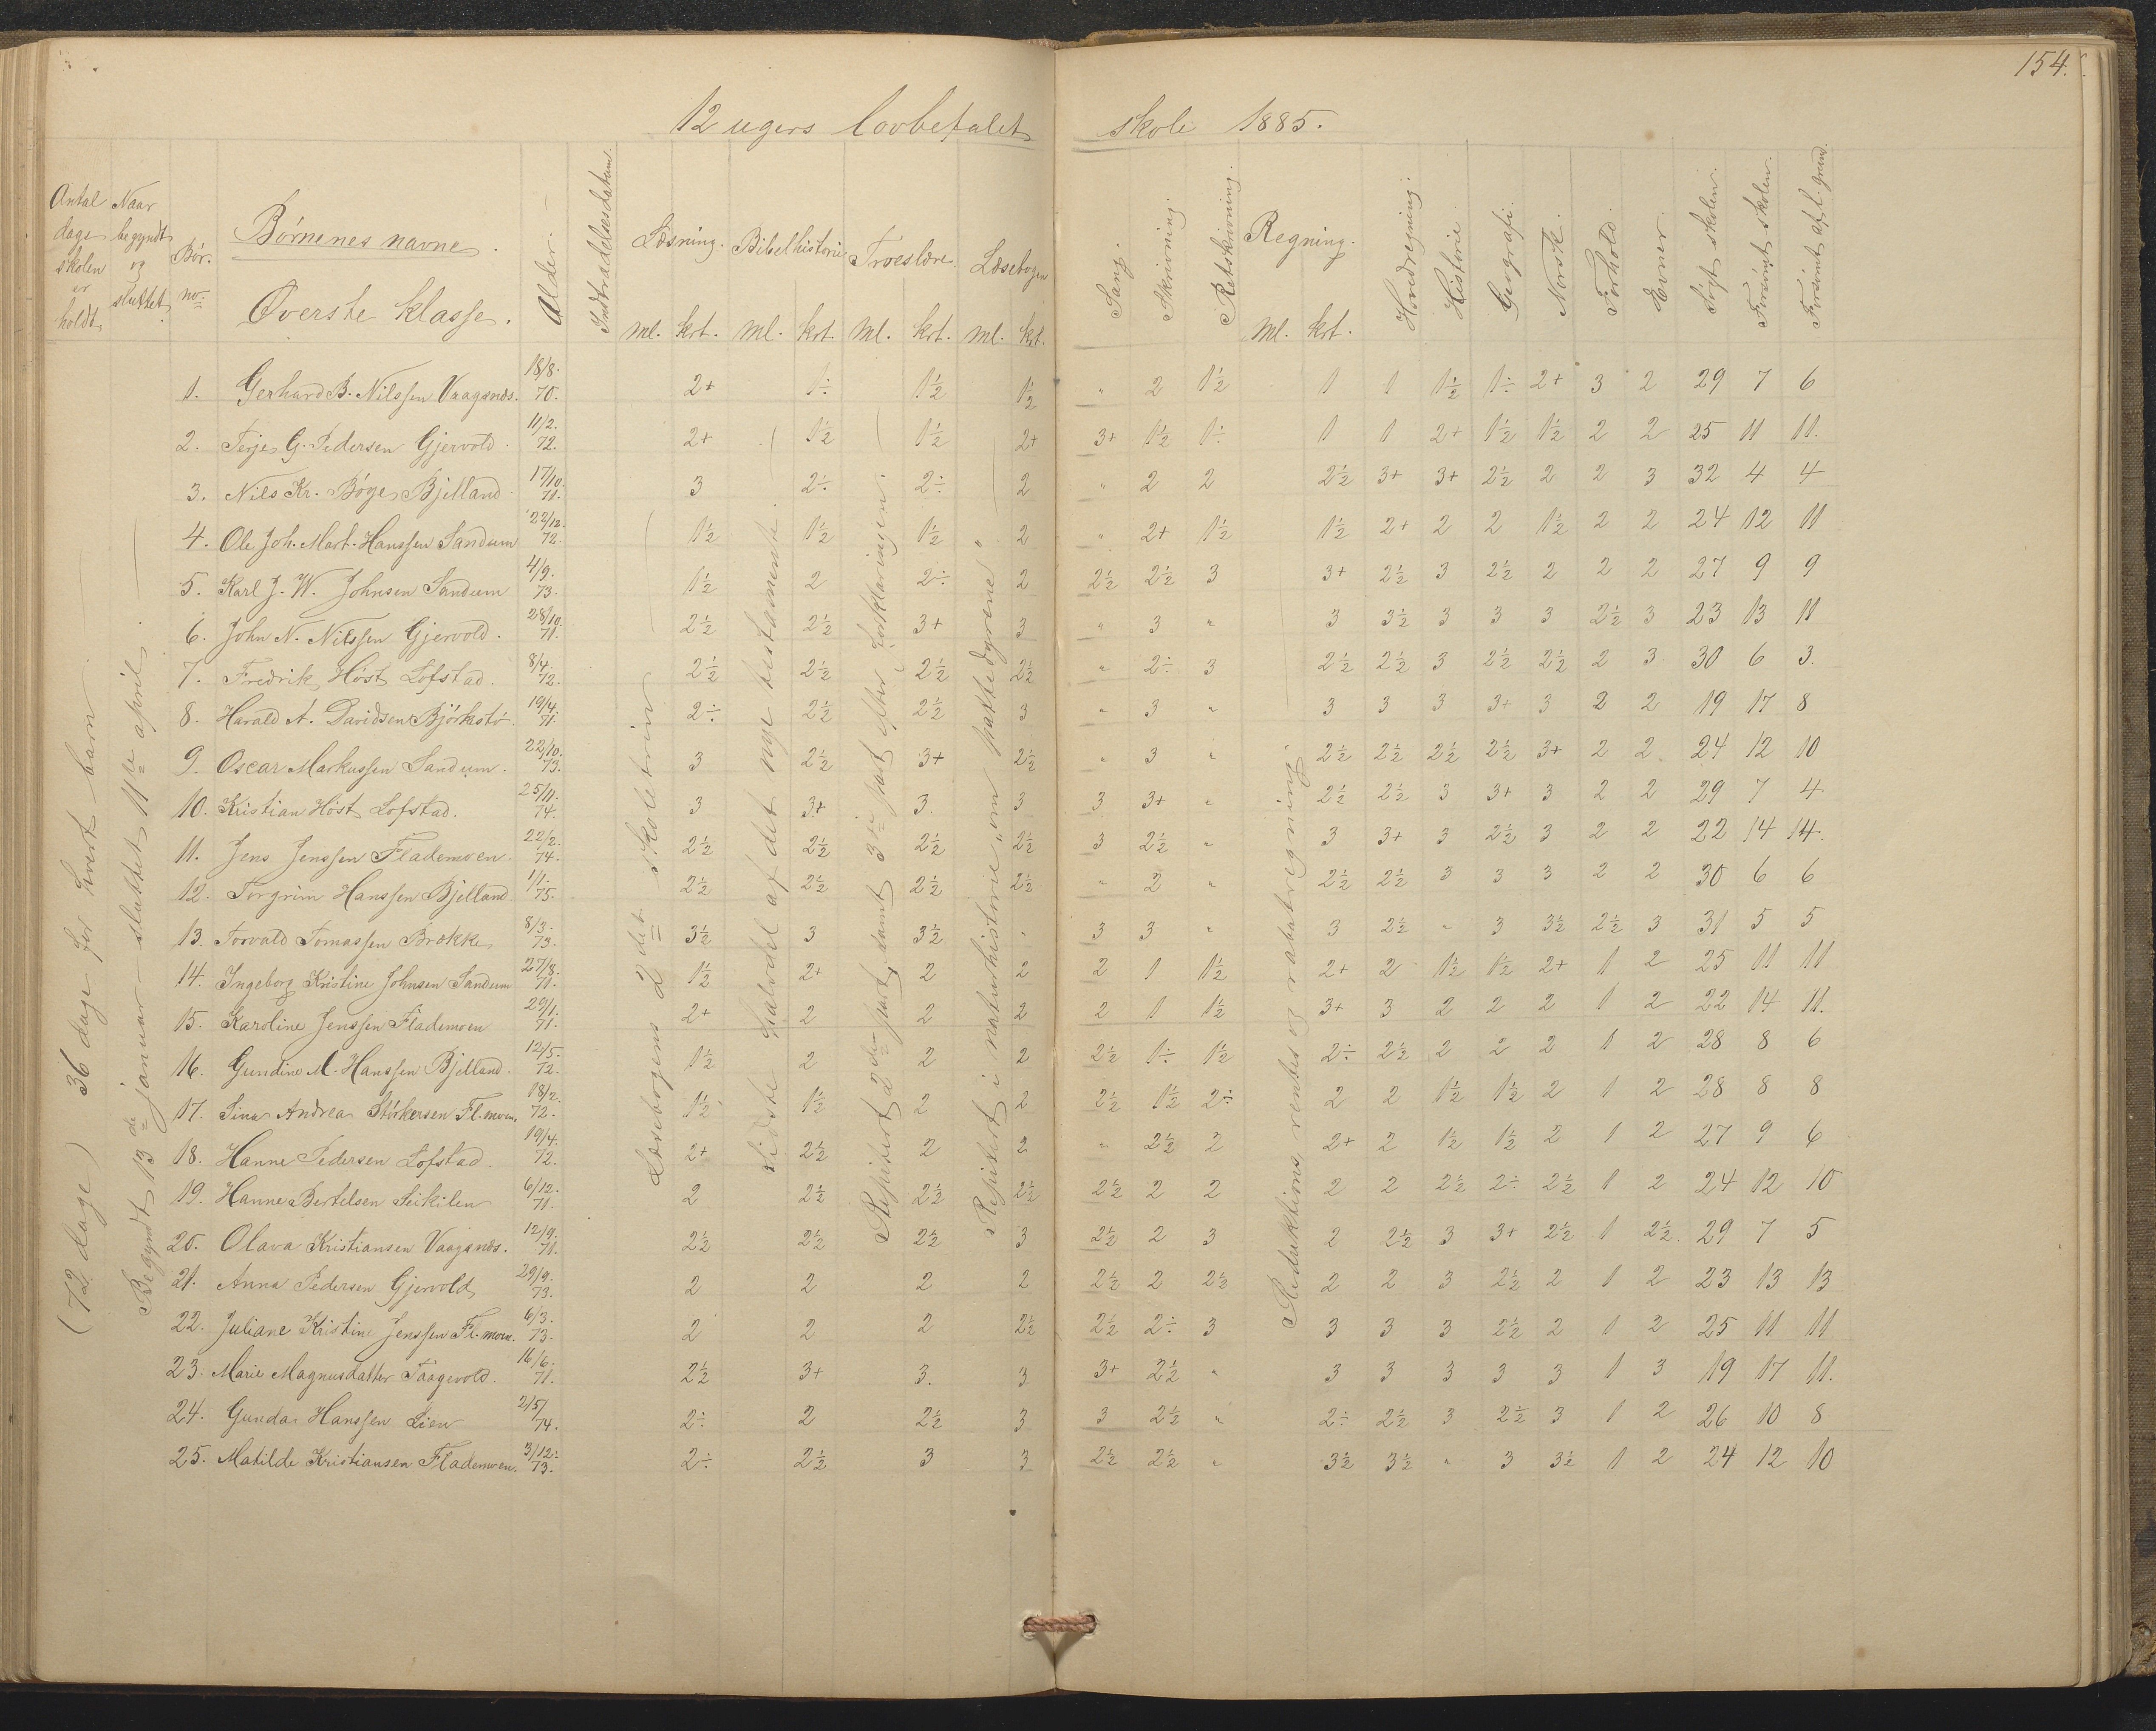 154.
12 ugers lovbefalet skole 1885.
Antal dage skolen er holdt
Naar begyndt og sluttet
Bør. no.
Børnenes navne.
Øverste klasse.
Alder.
Indtrædelsesdatum.
Læsning. ml. krt.
Bibelhistorie ml. krt.
Troeslære. ml. krt.
Læsebogen ml. krt.
Sang.
Skrivning.
Retskrivning.
Regning. ml. krt.
Hovedregning.
Historie
Geografi.
Norsk.
Forhold.
Evner.
Søgt skolen.
Forsømt skolen.
Forsømt af l. grund.
(72 dage) 36 dage for hvert barn
Begyndt 13de januar – sluttet 11te april.
Læsebogens 2det skoletrin
Sidste halvdel af det nye testamente.
Repetert 2den part, samt 3die part efter Forklaringen.
Repetert i naturhistorie "om pattedyrene"
Reduktions, rentes og rabatregning.
1. Gerhard B. Nilssen Vaagsnes. 18/8. 70. 2+ 1÷ 1½ 1½ " 2 1½ 1 1 1½ 1÷ 2+ 3 2 29 7 6
2. Terje G. Pedersen Gjervold. 11/2. 72. 2+ 1½ 1½ 2+ 3+ 1½ 1÷ 1 1 2+ 1½ 1½ 2 2 25 11 11.
3. Nils Kr. Bøge Bjelland. 17/10. 71. 3 2÷ 2÷ 2 " 2 2 2½ 3+ 3+ 2½ 2 2 3 32 4 4
4. Ole Joh. Mart. Hanssen Sandum 22/12. 72. 1½ 1½ 1½ 2 " 2+ 1½ 1½ 2+ 2 2 1½ 2 2 24 12 11
5. Karl J. W. Johnsen Sandum 4/9. 73. 1½ 2 2÷ 2 2½ 2½ 3 3+ 2½ 3 2½ 2 2 2 27 9 9
6. John N. Nilssen Gjervold. 28/10. 71. 2½ 2½ 3+ 3 " 3 " 3 3½ 3 3 3 2½ 3 23 13 11
7. Fredrik Høst Lofstad. 8/4. 72. 2½ 2½ 2½ 2½ " 2÷ 3 2½ 2½ 3 2½ 2½ 2 3 30 6 3.
8. Harald A. Davidsen Bjørkstø. 19/4. 71. 2÷ 2½ 2½ 3 " 3 " 3 3 3 3+ 3 2 2 19 17 8
9. Oscar Markussen Sandum. 22/10. 73. 3 2½ 3+ 2½ " 3 " 2½ 2½ 2½ 2½ 3+ 2 2 24 12 10
10. Kristian Høst Lofstad. 25/11. 74. 3 3+ 3. 3 3 3+ " 2½ 2½ 3 3+ 3 2 2 29 7 4
11. Jens Jenssen Flademoen. 22/2. 74. 2½ 2½ 2½ 2½ 3 2½ " 3 3+ 3 2½ 3 2 2 22 14 14.
12. Torgrim Hanssen Bjelland. 1/1. 75. 2½ 2½ 2½ 2½ " 2 " 2½ 2½ 3 3 3 2 2 30 6 6
13. Torvald Tomassen Brække 8/3. 73. 3½ 3 3½ " 3 3 " 3 2½ " 3 3½ 2½ 3 31 5 5
14. Ingeborg Kristine Johnsen Sandum 27/8. 71. 1½ 2+ 2 2 2 1 1½ 2+ 2 1½ 1½ 2+ 1 2 25 11 11
15. Karoline Jenssen Flademoen 29/1. 71. 2+ 2 2 2 2 1 1½ 3+ 3 2 2 2 1 2 22 14 11.
16. Gundine M. Hanssen Bjelland. 12/5. 72. 1½ 2 2 2 2½ 1÷ 1½ 2÷ 2½ 2 2 2 1 2 28 8 6
17. Sina Andrea Størkersen Fl.moen. 18/2. 72. 1½ 1½ 2 2 2½ 1½ 2÷ 2 2 1½ 1½ 2 1 2 28 8 8
18. Hanne Pedersen Lofstad. 19/4. 72. 2+ 2½ 2 2 " 2½ 2 2+ 2 1½ 1½ 2 1 2 27 9 6
19. Hanne Bertelsen Seikilen 6/12. 71. 2 2½ 2½ 2½ 2½ 2 2 2 2 2½ 2÷ 2½ 1 2 24 12 10
20. Olava Kristiansen Vaagsnes. 12/9. 71. 2½ 2½ 2½ 3 2½ 2 3 2 2½ 3 3+ 2½ 1 2½ 29 7 5
21. Anna Pedersen Gjervold, 29/9. 73. 2 2 2 2 2½ 2 2½ 2 2 3 2½ 2 1 2 23 13 13
22. Juliane Kristine Jenssen Fl.moen. 6/3. 73. 2 2 2 2½ 2½ 2÷ 3 3 3 3 2½ 2 1 2 25 11 11
23. Marie Magnusdatter Taagevold. 16/6. 71. 2½ 3+ 3. 3 3+ 2½ " 3 3 3 3 3 1 3 19 17 11.
24. Gunda Hanssen Lien 2/5 74. 2÷ 2 2½ 3 3 2½ " 2÷ 2½ 3 2½ 3 1 2 26 10 8
25. Matilde Kristiansen Flademoen. 3/12. 73. 2÷ 2½ 3 3 2½ 2½ " 3½ 3½ " 3 3½ 1 2 24 12 10